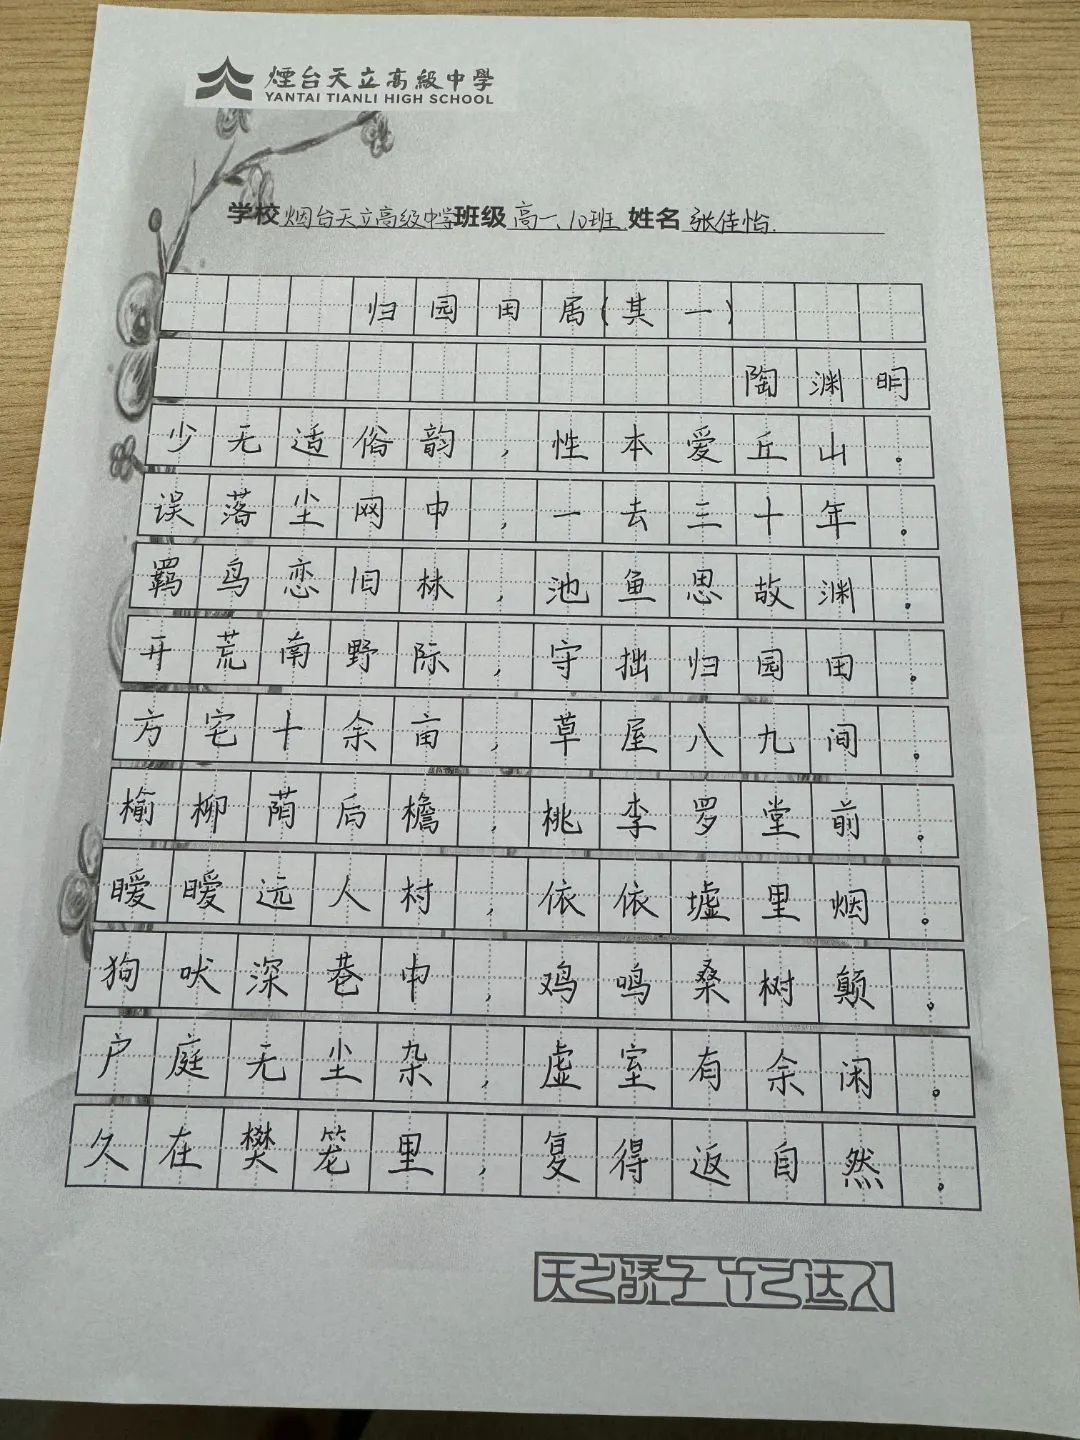 煙台天立高級中學
YANTAI TIANLI HIGH SCHOOL
学校 烟台天立高级中学 班级 高一、10班 姓名 张佳怡
归园田居(其一)
陶渊明
少无适俗韵，性本爱丘山。
误落尘网中，一去三十年。
羁鸟恋旧林，池鱼思故渊。
开荒南野际，守拙归园田。
方宅十余亩，草屋八九间。
榆柳荫后檐，桃李罗堂前。
暧暧远人村，依依墟里烟。
狗吠深巷中，鸡鸣桑树颠。
户庭无尘杂，虚室有余闲。
久在樊笼里，复得返自然。
天之骄子 立己达人